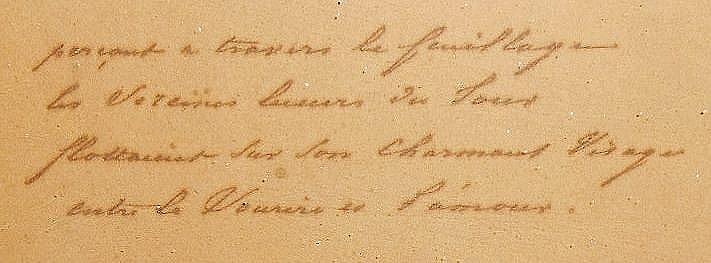 perçant a travers le feuillage
les Sereines lueurs du Jour
flottaient sur son charmant Visage
entre le Sourire et l'amour.